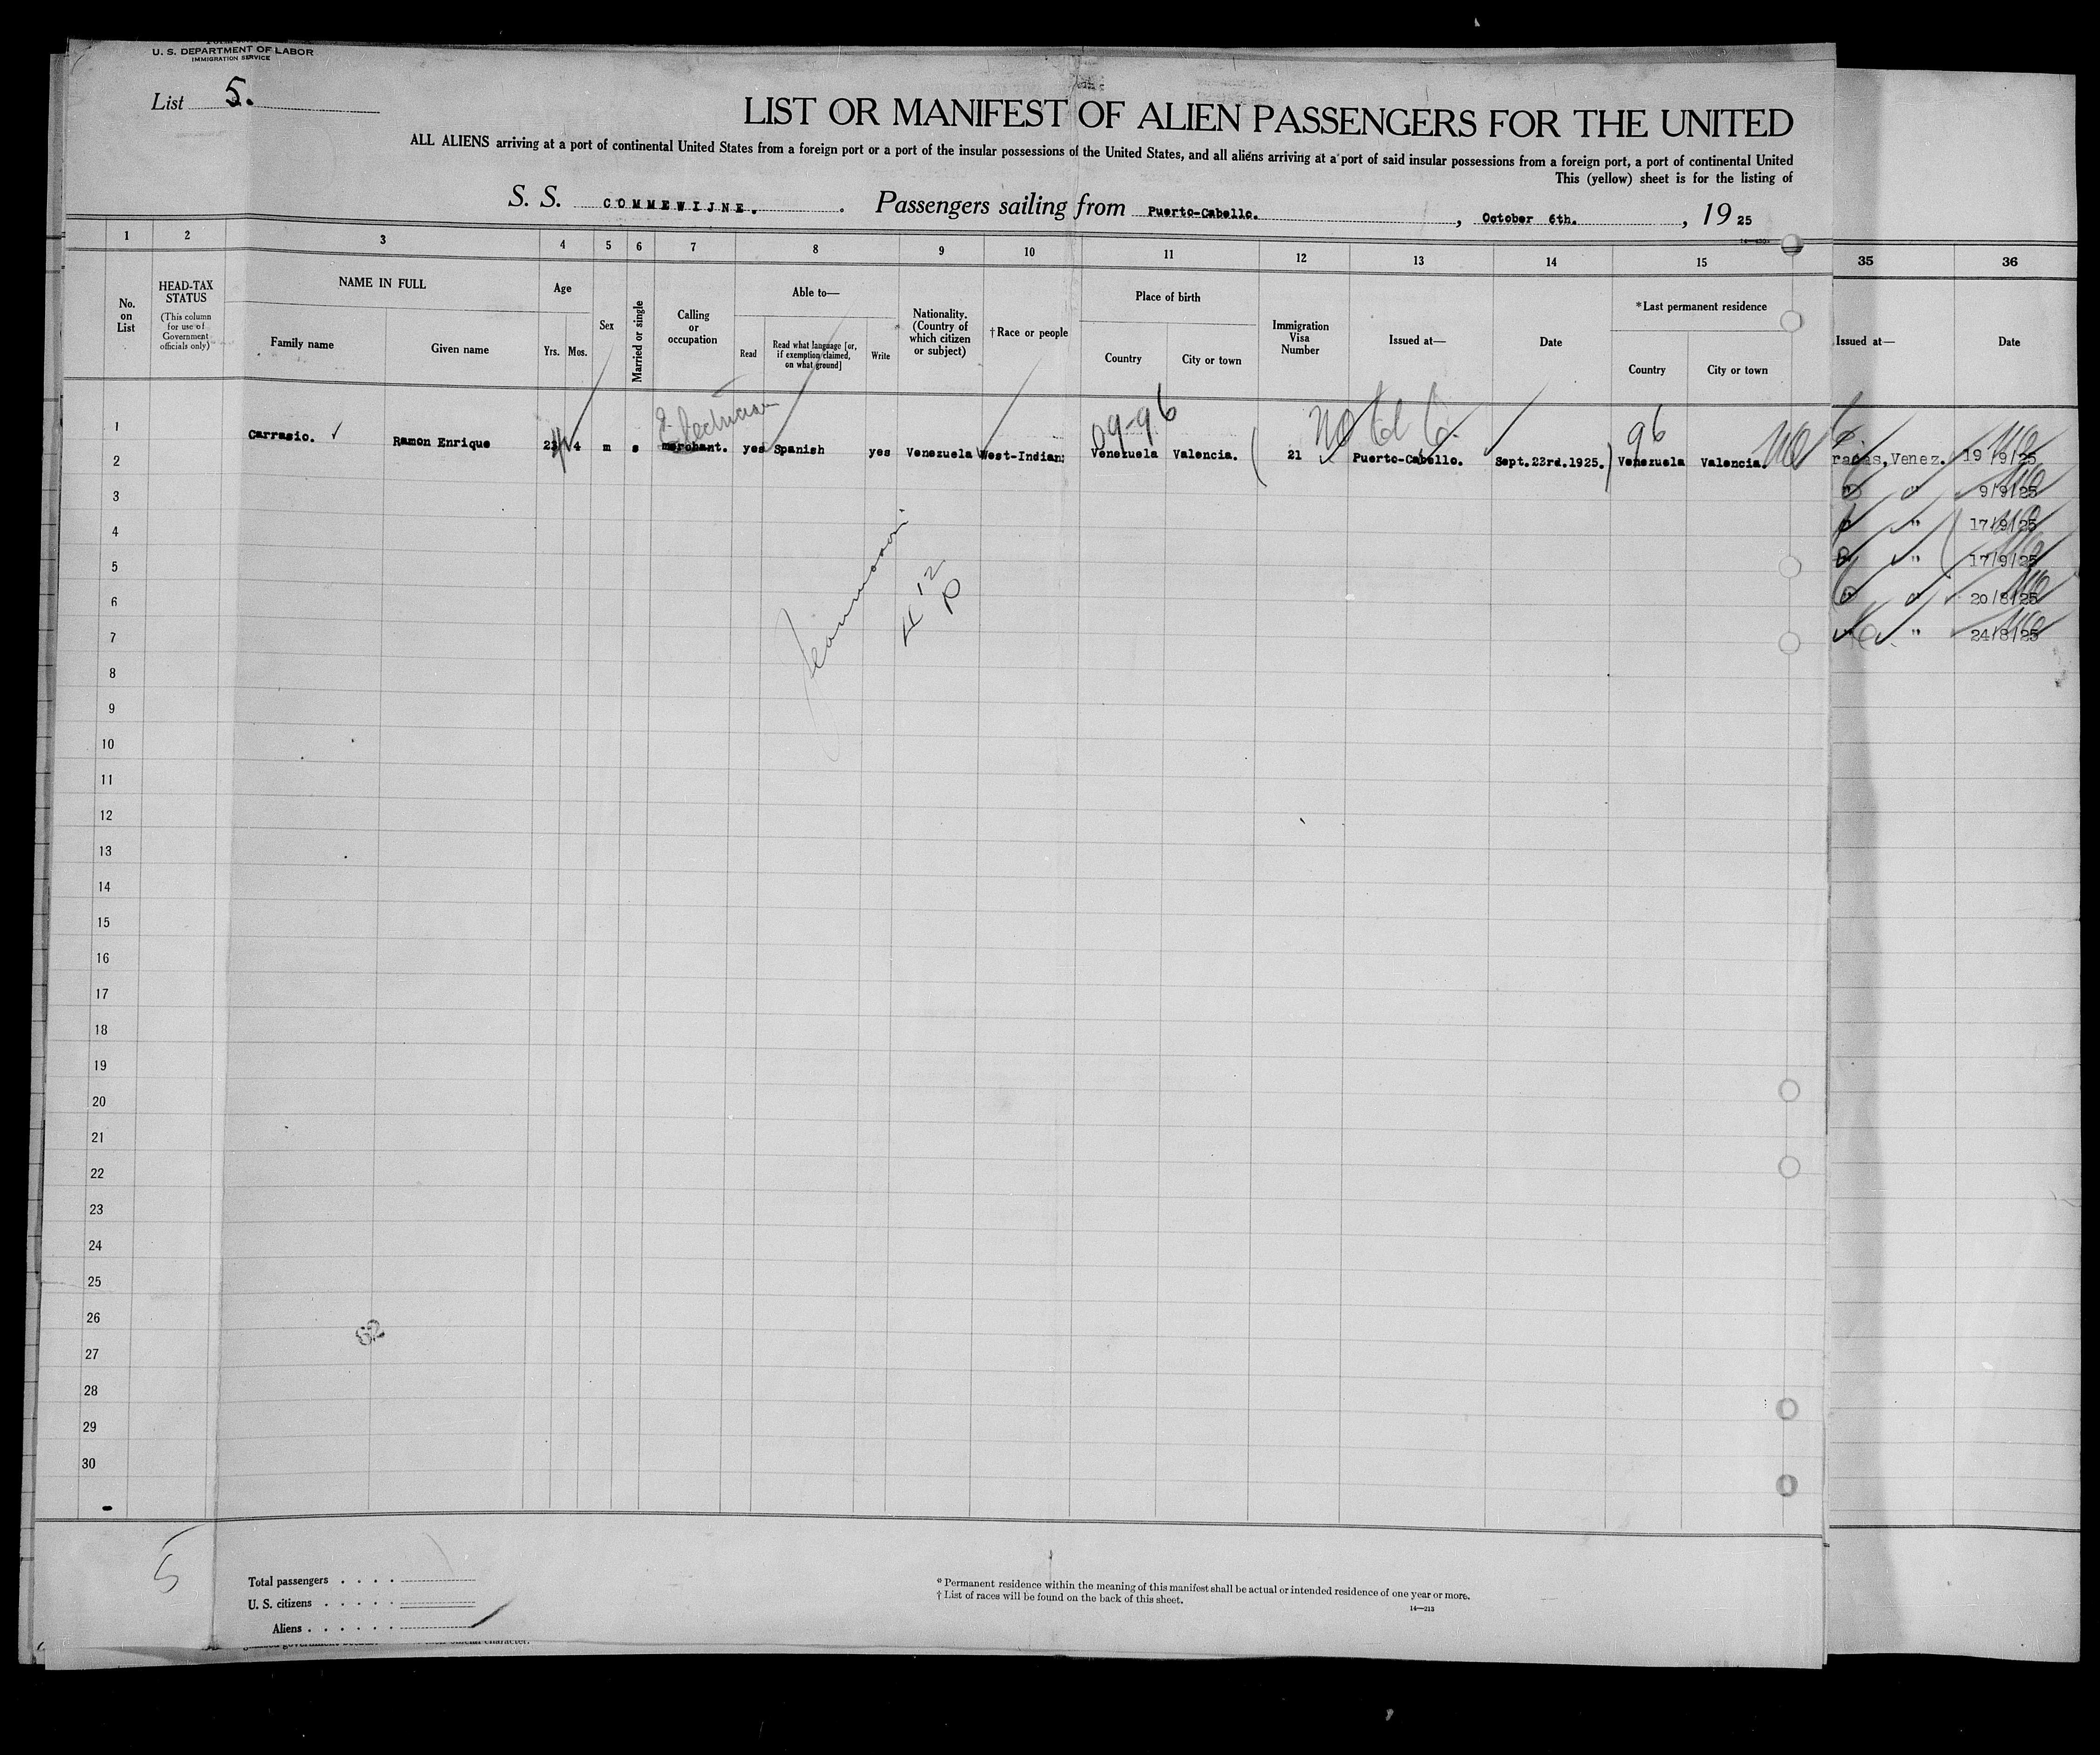 U. S. DEPARTMENT OF LABOR
IMMIGRATION SERVICE
List 5.
LIST OR MANIFEST OF ALIEN PASSENGERS FOR THE UNITED
ALL ALIENS arriving at a port of continental United States from a foreign port or a port of the insular possessions of the United States, and all aliens arriving at a port of said insular possessions from a foreign port, a port of continental United
This (yellow) sheet is for the listing of
S. S. COMMEWIJNE. Passengers sailing from Puerto-Cabello. , October 6th. , 19 25
1 2 3 4 5 6 7 8 9 10 11 12 13 14 15 35 36
No. on List
HEAD-TAX STATUS
(This column for use of Government officials only)
NAME IN FULL
Family name
Given name
Age
Yrs. Mos.
Sex
Married or single
Calling or occupation
Able to—
Read
Read what language [or, if exemption claimed, on what ground]
Write
Nationality. (Country of which citizen or subject)
† Race or people
Place of birth
Country
City or town
Immigration Visa Number
Issued at—
Date
* Last permanent residence
Country
City or town
Issued at—
Date
Electrician
09-96
96
1
Carrasio. Ramon Enrique 23 4 m s merchant. yes Spanish yes Venezuela West-Indian; Venezuela Valencia. 21 Puerto-Cabello. Sept.23rd.1925. Venezuela Valencia.
racas, Venez. 19/9/25
" " 9/9/25
" " 17/9/25
" " 17/9/25
" " 20/8/25
" " 24/8/25
2
3
4
5
6
7
8
9
10
11
12
13
14
15
16
17
18
19
20
21
22
23
24
25
26
27
28
29
30
5
Total passengers
U. S. citizens
Aliens
* Permanent residence within the meaning of this manifest shall be actual or intended residence of one year or more.
† List of races will be found on the back of this sheet.
14—213